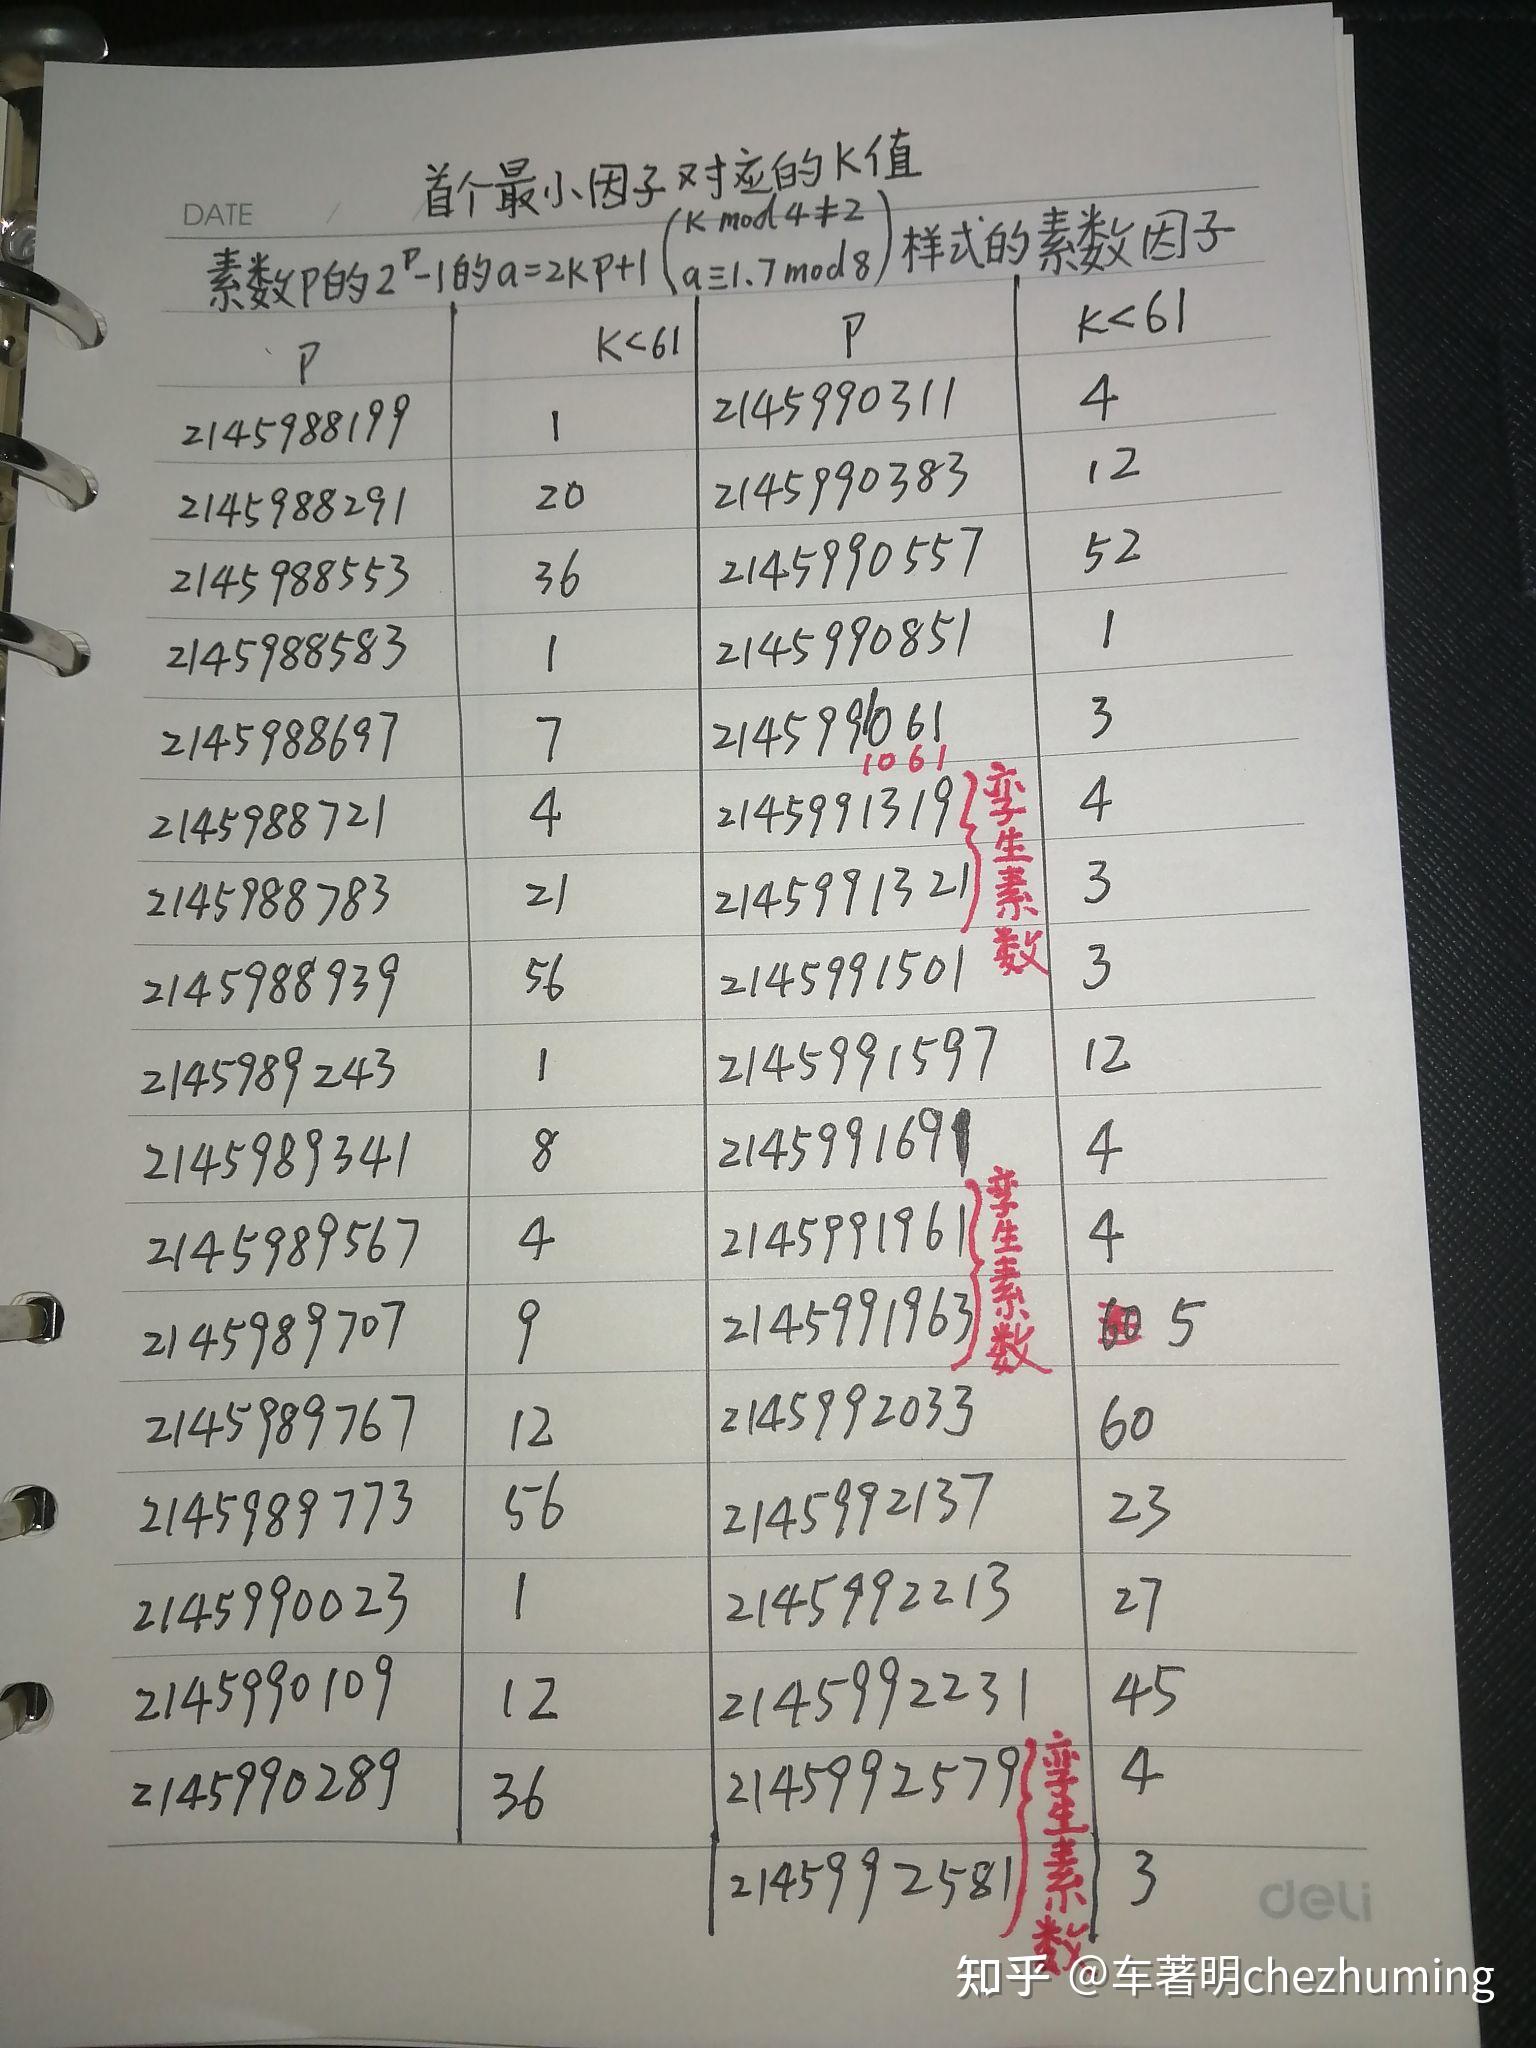 首个最小因子对应的K值
DATE / /
素数P的2^P-1的a=2KP+1 (K mod 4≠2 a≡1.7 mod 8) 样式的素数因子
P K<61 P K<61
2145988199 1 2145990311 4
2145988291 20 2145990383 12
2145988553 36 2145990557 52
2145988583 1 2145990851 1
2145988697 7 2145991061 3
1061
2145988721 4 2145991319 4
2145988783 21 2145991321 3
孪生素数
2145988939 56 2145991501 3
2145989243 1 2145991597 12
2145989341 8 214599169 4
2145989567 4 2145991961 4
2145989707 9 2145991963 60 5
孪生素数
2145989767 12 2145992033 60
2145989773 56 2145992137 23
2145990023 1 2145992213 27
2145990109 12 2145992231 45
2145990289 36 2145992579 4
2145992581 3
孪生素数
deli
知乎 @车著明chezhuming